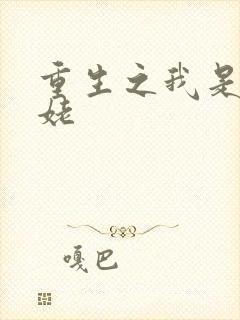 重生之我是
姥
嘎巴